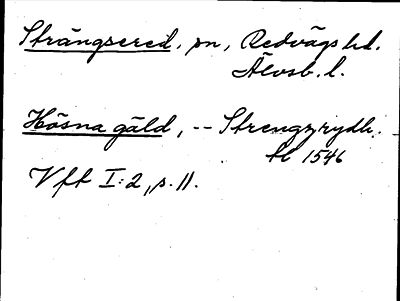 Strängsered, sn, Redvägs hd.
Älvsb. l.
Hösna gäld, -- Strengzrydh.
tl 1546
Vft I:2, s. 11.